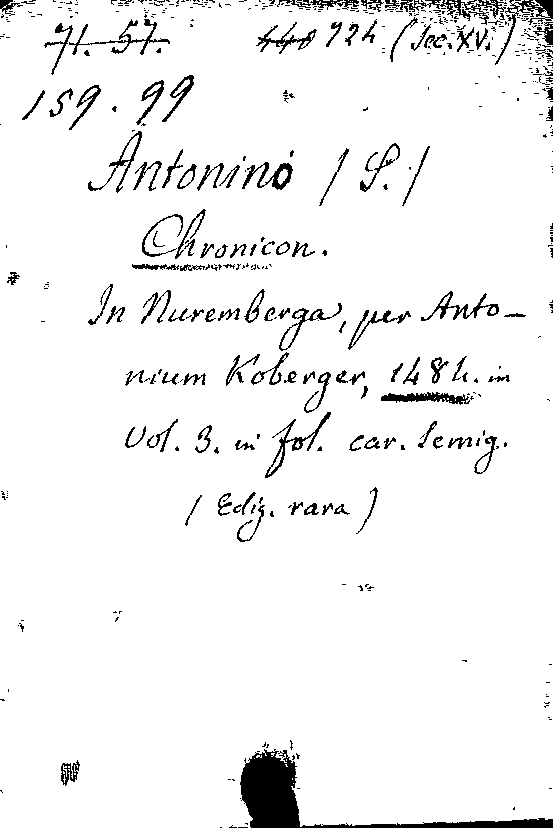 71. 57. 448 924 (Sec. XV.)
159. 99
Antonino (S.)
Chronicon.
In Nuremberga, per Anto-
nium Koberger, 1484. in
Vol. 3. in fol. car. semig.
(Ediz. rara)